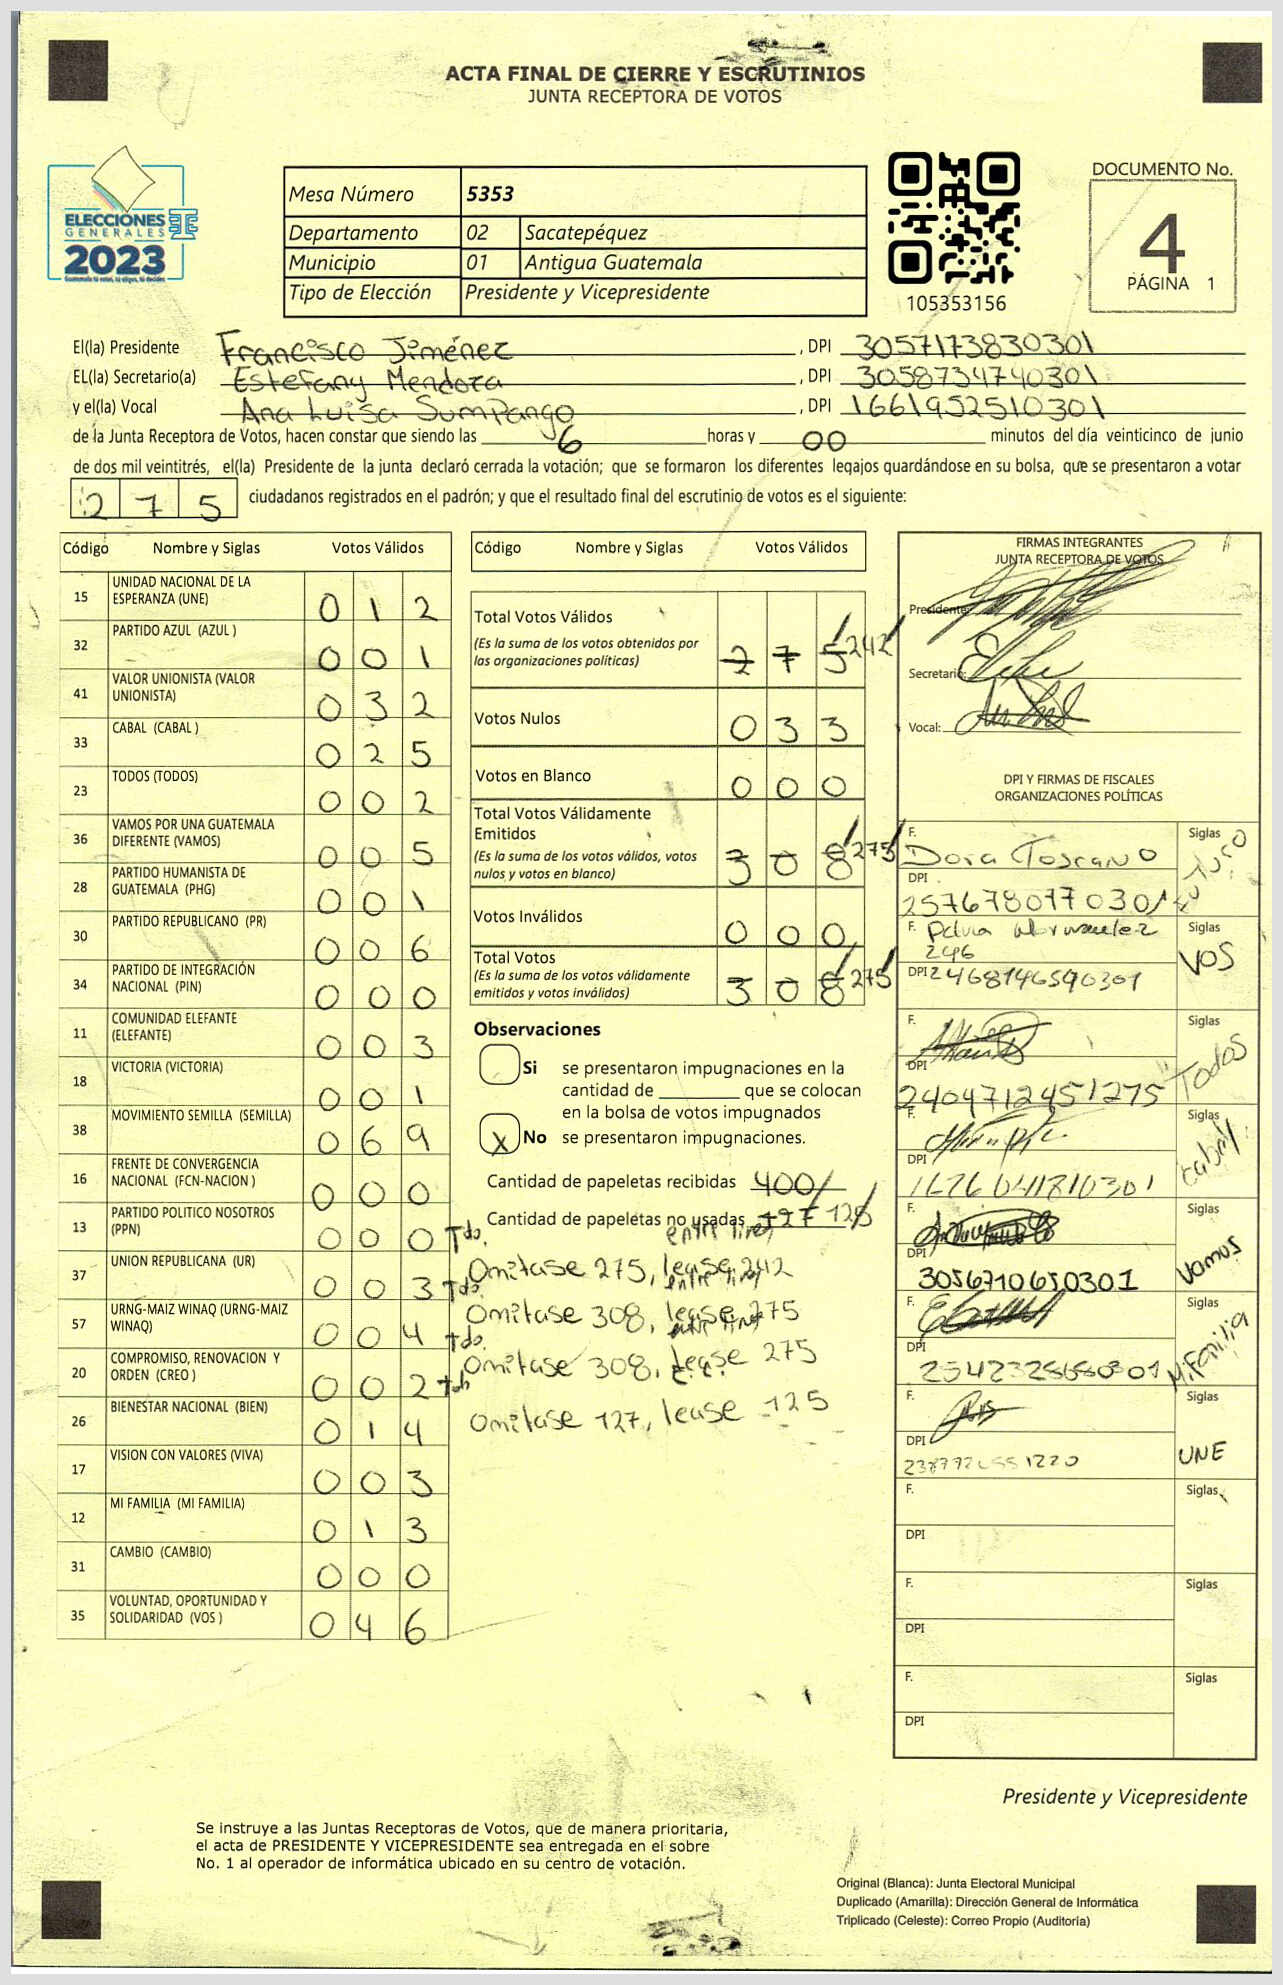 ACTA FINAL DE CIERRE Y ESCRUTINIOS
JUNTA RECEPTORA DE VOTOS
ELECCIONES
GENERALES
2023
Mesa Número 5353
Departamento 02 Sacatepéquez
Municipio 01 Antigua Guatemala
Tipo de Elección Presidente y Vicepresidente
105353156
DOCUMENTO No.
4
PÁGINA 1
El(la) Presidente Francisco Jiménez , DPI 3057173830301
EL(la) Secretario(a) Estefany Mendoza , DPI 3058734740301
y el(la) Vocal Ana Luisa Sumpango , DPI 1661952510301
de la Junta Receptora de Votos, hacen constar que siendo las 6 horas y 00 minutos del día veinticinco de junio
de dos mil veintitrés, el(la) Presidente de la junta declaró cerrada la votación; que se formaron los diferentes legajos guardándose en su bolsa, que se presentaron a votar
2 7 5 ciudadanos registrados en el padrón; y que el resultado final del escrutinio de votos es el siguiente:
Código Nombre y Siglas Votos Válidos
15 UNIDAD NACIONAL DE LA ESPERANZA (UNE) 0 1 2
32 PARTIDO AZUL (AZUL ) 0 0 1
41 VALOR UNIONISTA (VALOR UNIONISTA) 0 3 2
33 CABAL (CABAL ) 0 2 5
23 TODOS (TODOS) 0 0 2
36 VAMOS POR UNA GUATEMALA DIFERENTE (VAMOS) 0 0 5
28 PARTIDO HUMANISTA DE GUATEMALA (PHG) 0 0 1
30 PARTIDO REPUBLICANO (PR) 0 0 6
34 PARTIDO DE INTEGRACIÓN NACIONAL (PIN) 0 0 0
11 COMUNIDAD ELEFANTE (ELEFANTE) 0 0 3
18 VICTORIA (VICTORIA) 0 0 1
38 MOVIMIENTO SEMILLA (SEMILLA) 0 6 9
16 FRENTE DE CONVERGENCIA NACIONAL (FCN-NACION ) 0 0 0
13 PARTIDO POLITICO NOSOTROS (PPN) 0 0 0
37 UNION REPUBLICANA (UR) 0 0 3
57 URNG-MAIZ WINAQ (URNG-MAIZ WINAQ) 0 0 4
20 COMPROMISO, RENOVACION Y ORDEN (CREO ) 0 0 2
26 BIENESTAR NACIONAL (BIEN) 0 1 4
17 VISION CON VALORES (VIVA) 0 0 3
12 MI FAMILIA (MI FAMILIA) 0 1 3
31 CAMBIO (CAMBIO) 0 0 0
35 VOLUNTAD, OPORTUNIDAD Y SOLIDARIDAD (VOS ) 0 4 6
Código Nombre y Siglas Votos Válidos
Total Votos Válidos 2 7 5 242
(Es la suma de los votos obtenidos por
las organizaciones políticas)
Votos Nulos 0 3 3
Votos en Blanco 0 0 0
Total Votos Válidamente
Emitidos 3 0 8 275
(Es la suma de los votos válidos, votos
nulos y votos en blanco)
Votos Inválidos 0 0 0
Total Votos 3 0 8 275
(Es la suma de los votos válidamente
emitidos y votos inválidos)
Observaciones
Si se presentaron impugnaciones en la
cantidad de ________ que se colocan
en la bolsa de votos impugnados
X No se presentaron impugnaciones.
Cantidad de papeletas recibidas 400
Cantidad de papeletas no usadas 127 125
Tdo. Omitase 275, entre lineas lease 242
Tdo. Omitase 308, entre lineas lease 275
Tdo. Omitase 308, entre lineas lease 275
Tdo Omitase 127, lease 125
FIRMAS INTEGRANTES
JUNTA RECEPTORA DE VOTOS
Presidente:
Secretario:
Vocal:
DPI Y FIRMAS DE FISCALES
ORGANIZACIONES POLÍTICAS
F. Dora Toscano Siglas
DPI 2576780770301
F. Siglas VOS
246
DPI 2468146590301
F. Siglas Todos
DPI 2404712451275
F. Siglas Cabal
DPI 1676041810301
F. Siglas Vamos
DPI 3056710650301
F. Siglas Mi Familia
DPI
F. Siglas UNE
DPI
F. Siglas
DPI
F. Siglas
DPI
F. Siglas
DPI
Presidente y Vicepresidente
Se instruye a las Juntas Receptoras de Votos, que de manera prioritaria,
el acta de PRESIDENTE Y VICEPRESIDENTE sea entregada en el sobre
No. 1 al operador de informática ubicado en su centro de votación.
Original (Blanca): Junta Electoral Municipal
Duplicado (Amarilla): Dirección General de Informática
Triplicado (Celeste): Correo Propio (Auditoría)